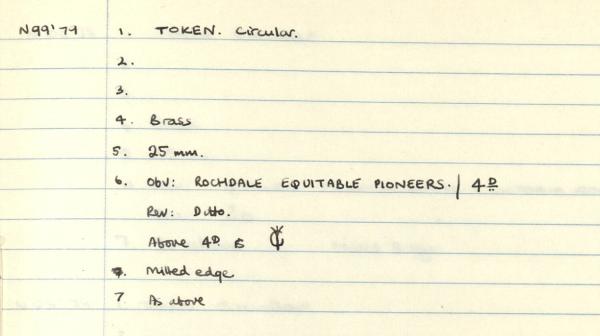 N99'79 1. TOKEN. Circular.
2.
3.
4. Brass
5. 25 mm.
6. Obv: ROCHDALE EQUITABLE PIONEERS. / 4D
Rev: Ditto.
Above 4D. is
Milled edge
7 As above